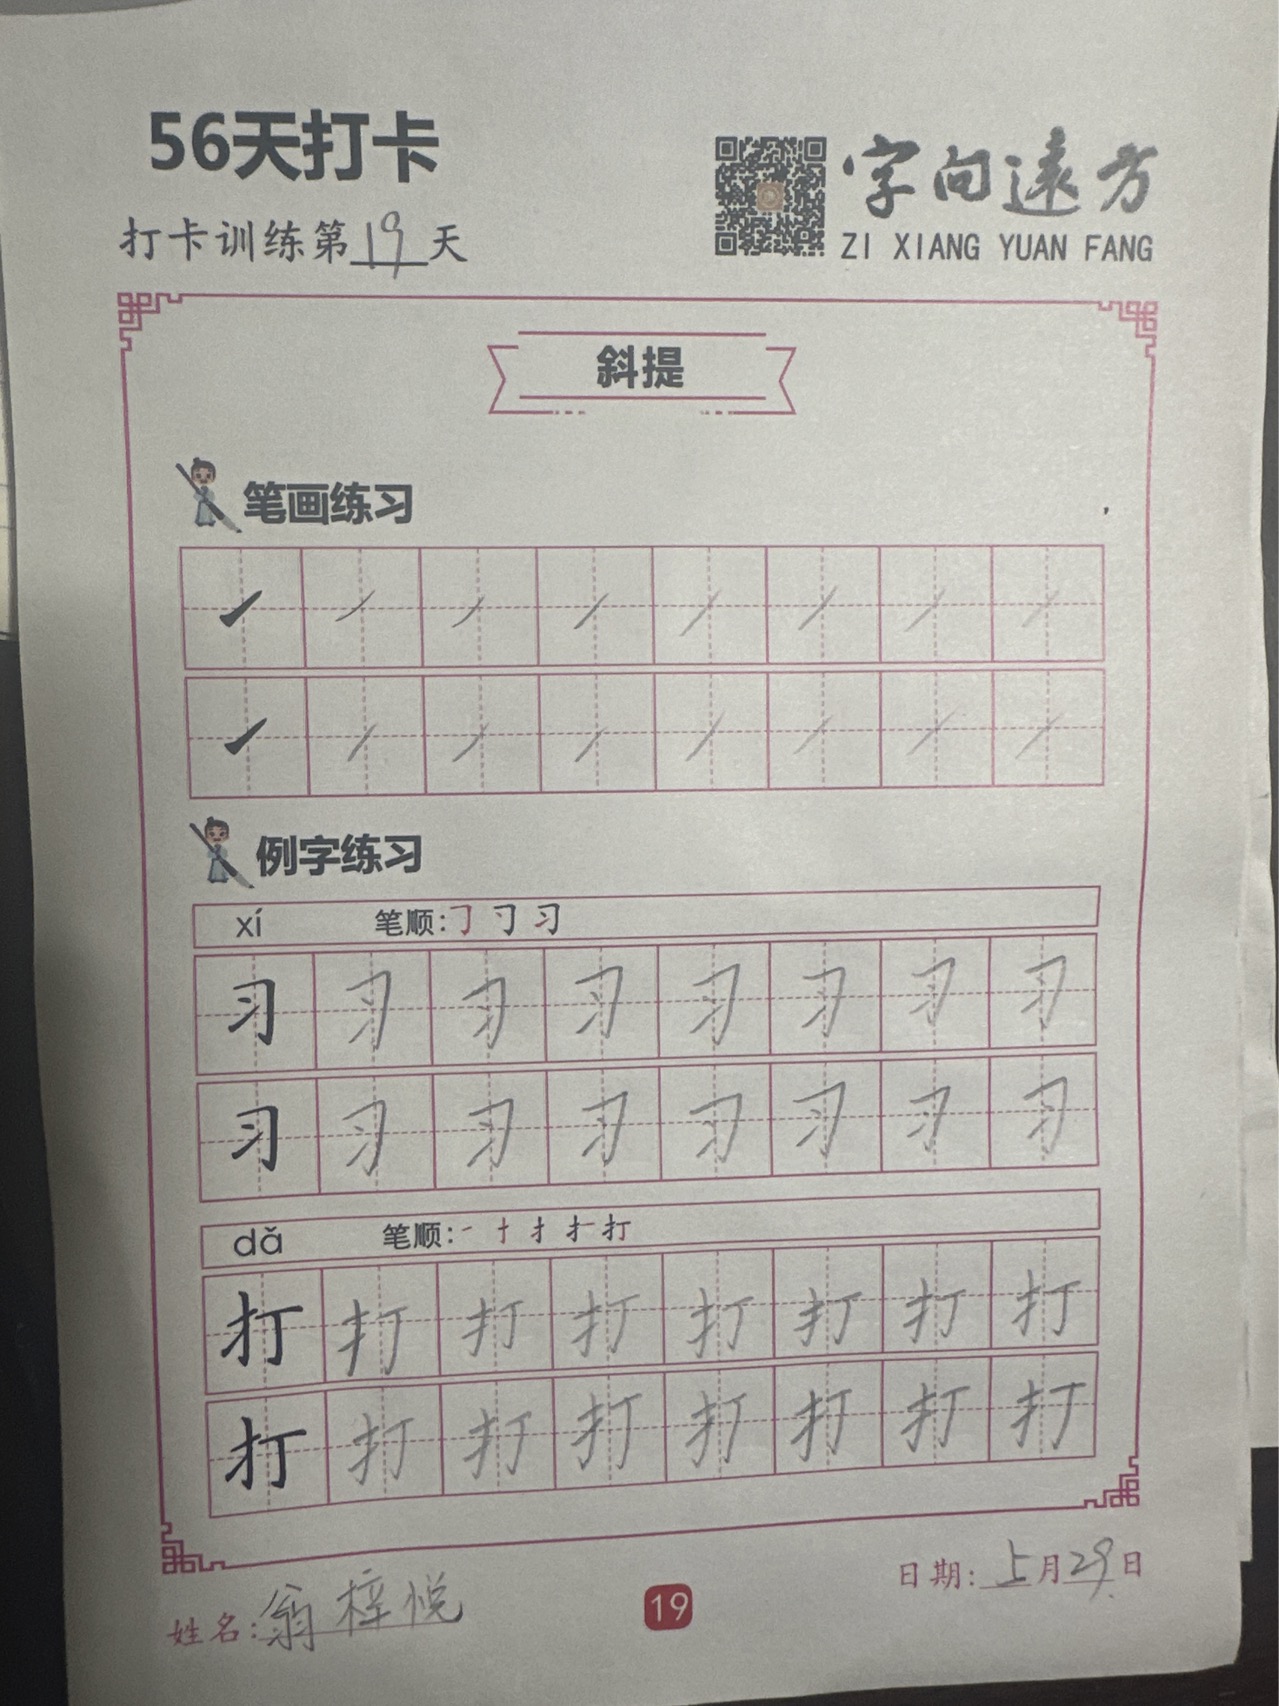 56天打卡
字向遠方
打卡训练第19天
ZI XIANG YUAN FANG
斜提
笔画练习
例字练习
xí 笔顺:㇆ 刁 习
习 习 习 习 习 习 习 习
习 习 习 习 习 习 习 习
dǎ 笔顺:一 十 扌 扌一 打
打 打 打 打 打 打 打 打
打 打 打 打 打 打 打 打
日期:5月29日
姓名:翁梓悦
19